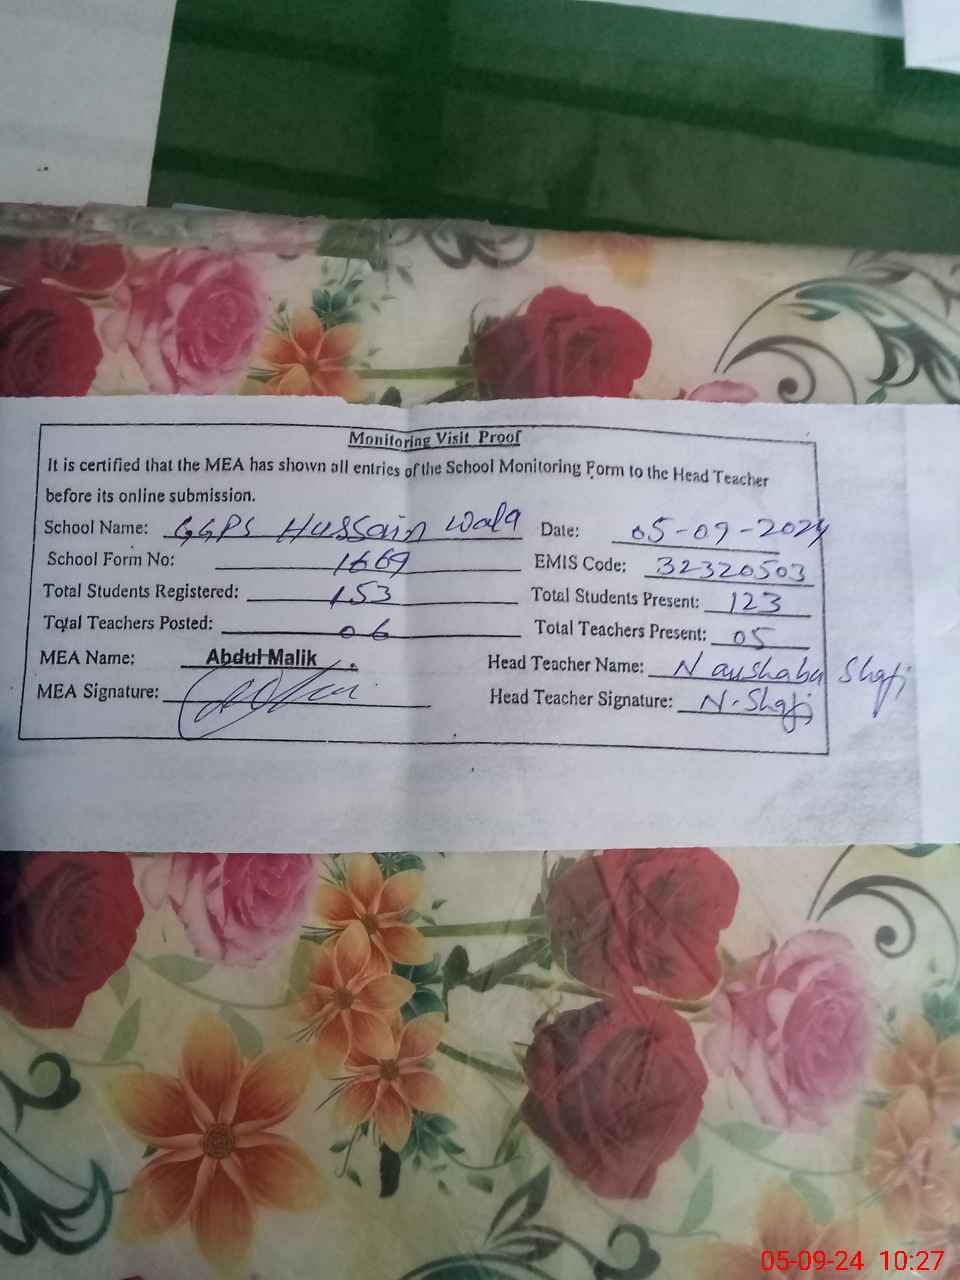 Monitoring Visit Proof
It is certified that the MEA has shown all entries of the School Monitoring Form to the Head Teacher
before its online submission.
School Name: GGPS Hussain wala Date: 05-09-2024
School Form No: 1669 EMIS Code: 32320503
Total Students Registered: 153 Total Students Present: 123
Total Teachers Posted: 06 Total Teachers Present: 05
MEA Name: Abdul Malik Head Teacher Name: Naushaba Shafi
MEA Signature: Head Teacher Signature: N. Shafi
05-09-24 10:27